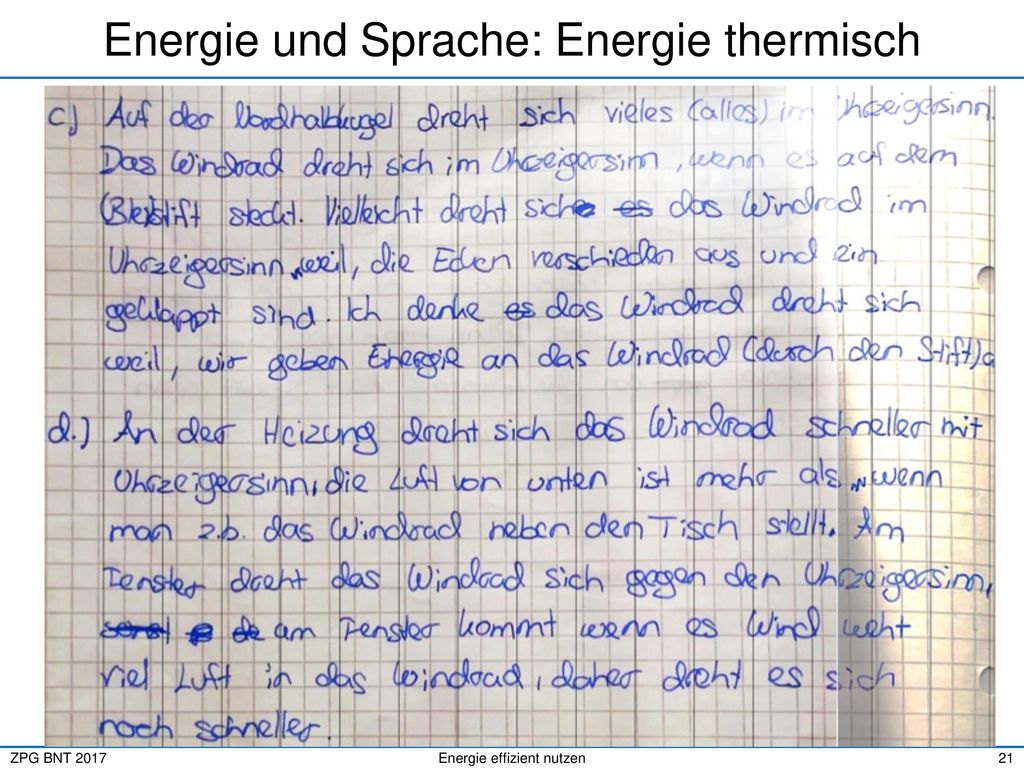 Energie und Sprache: Energie thermisch
c) Auf der Nordhalbkugel dreht sich vieles (alles) im Uhrzeigersinn.
Das Windrad dreht sich im Uhrzeigersinn, wenn es auf dem
Bleistift steckt. Vielleicht dreht sich es das Windrad im
Uhrzeigersinn weil, die Ecken verschieden aus und ein
geklappt sind. Ich denke es das Windrad dreht sich
weil, wir geben Energie an das Windrad (durch den Stift)
d.) An der Heizung dreht sich das Windrad schneller mit
Uhrzeigersinn, die Luft von unten ist mehr als, wenn
man z.b. das Windrad neben den Tisch stellt. Am
Fenster dreht das Windrad sich gegen den Uhrzeigersinn,
am Fenster kommt wenn es Wind weht
viel Luft in das Windrad, daher dreht es sich
noch schneller.
ZPG BNT 2017
Energie effizient nutzen
21